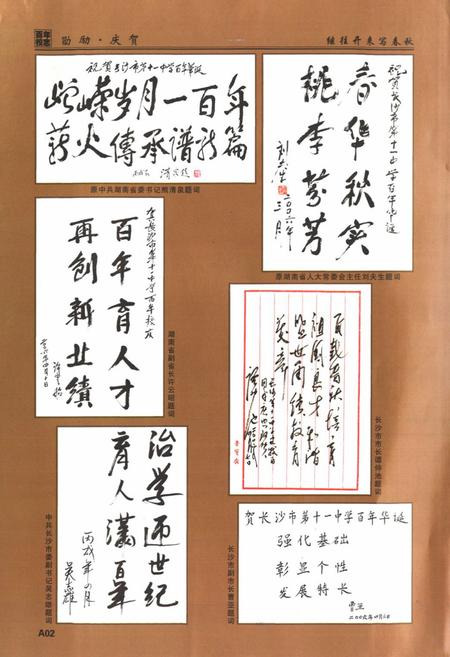 百年校志
勖励·庆贺
继往开来写春秋
祝贺长沙市第十一中学百年华诞
峥嵘岁月一百年
薪火傳承譜新篇
原中共湖南省委书记熊清泉题词
祝贺长沙市第十一中学百年华诞
春华秋实
桃李芬芳
刘夫生
二〇〇六年
三月
原湖南省人大常委会主任刘夫生题词
贺长沙市第十一中学百年校庆
百年育人才
再创新业绩
湖南省副省长许云昭题词
百载春秋培育
祖国良才
长沙市市长谭仲池题词
治学迊世纪
育人满百年
丙戌年四月
吴志雄
中共长沙市委副书记吴志雄题词
贺长沙市第十一中学百年华诞
强化基础
彰显个性
发展特长
曹亚
二〇〇六年四月二日
长沙市副市长曹亚题词
A02